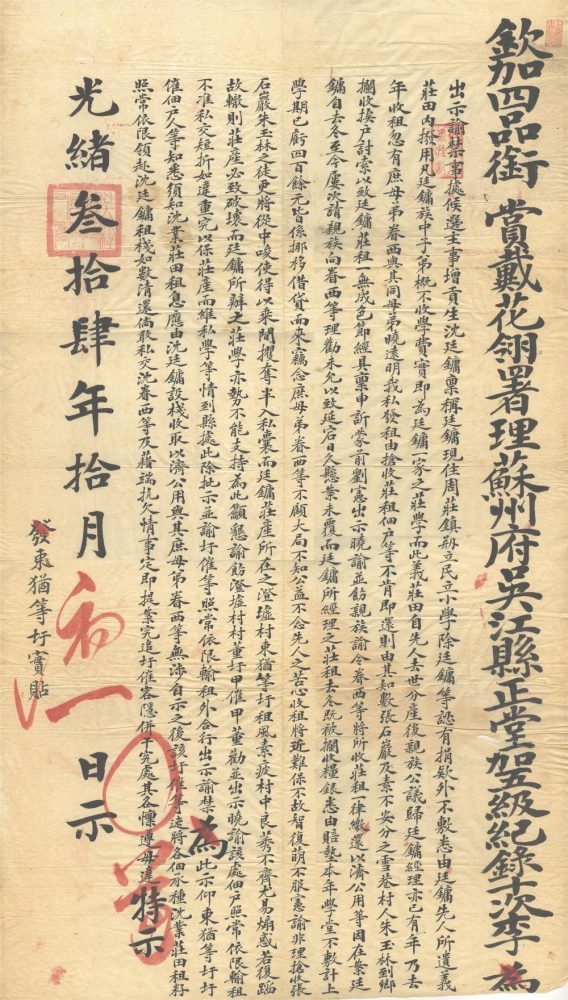 欽加四品銜賞戴花翎署理蘇州府吳江縣正堂加五級紀錄十次李 為
出示諭禁事據候選主事增貢生沈廷鏞稟稱廷鏞現住周莊鎮剏立民立小學除廷鏞等認有捐欵外不敷悉由廷鏞先人所遺義
莊田內撥用凡廷鏞族中子弟概不收學費實即為廷鏞一家之莊學而此義莊田自先人去世分產後親族公議歸廷鏞經理亦已有年乃去
年收租忽有庶母弟眷西與其同母弟曉遠明我私發租由搶收莊租佃戶等不肯即還則由其知數張石巖及素不安分之雪巷村人朱玉林到鄉
攔收挨戶討索以致廷鏞莊租一無成色節經具稟申訴蒙前劉憲出示曉諭並飭親族諭令眷西等將所收莊租一律繳還以濟公用等因在案廷
鏞自去冬至今屢次請親族向眷西等理勸未允以致延宕日久懸案未覆而廷鏞所經理之莊租去冬既被攔收糧銀悉由賠墊本年學堂不敷計上
學期已虧四百餘元皆係挪移借貸而來竊念庶母弟眷西等不顧大局不知公益不念先人之苦心收租將近難保不故智復萌不服憲諭非理搶收張
石巖朱玉林之徒更將從中唆使得以乘間攫奪半入私囊而廷鏞莊產所在之澄墟村東猶等圩租風素疲村中良莠不齊尤易煽惑若復蹈
故轍則莊產必致破壞而廷鏞所辦之莊學亦勢不能支持為此籲懇諭飭澄墟村村董圩甲催甲董勸並出示曉諭該處佃戶照常依限輸租
不准私交短折如違重究以保莊產而維私學等情到縣據此除批示並諭圩催等照常依限輸租外合行出示諭禁為此示仰東猶等圩圩
催佃戶人等知悉須知沈業莊田租息應由沈廷鏞設棧收取以濟公用與其庶母弟眷西等無涉自示之後該圩催等速將各佃承種沈業莊田租籽
照常依限領赴沈廷鏞租棧如數清還倘敢私交沈眷西等及藉端抗欠情事定即提案究追圩催容隱併干究處其各懍遵毋違特示
光緒叁拾肆年拾月初一日示
發東猶等圩實貼